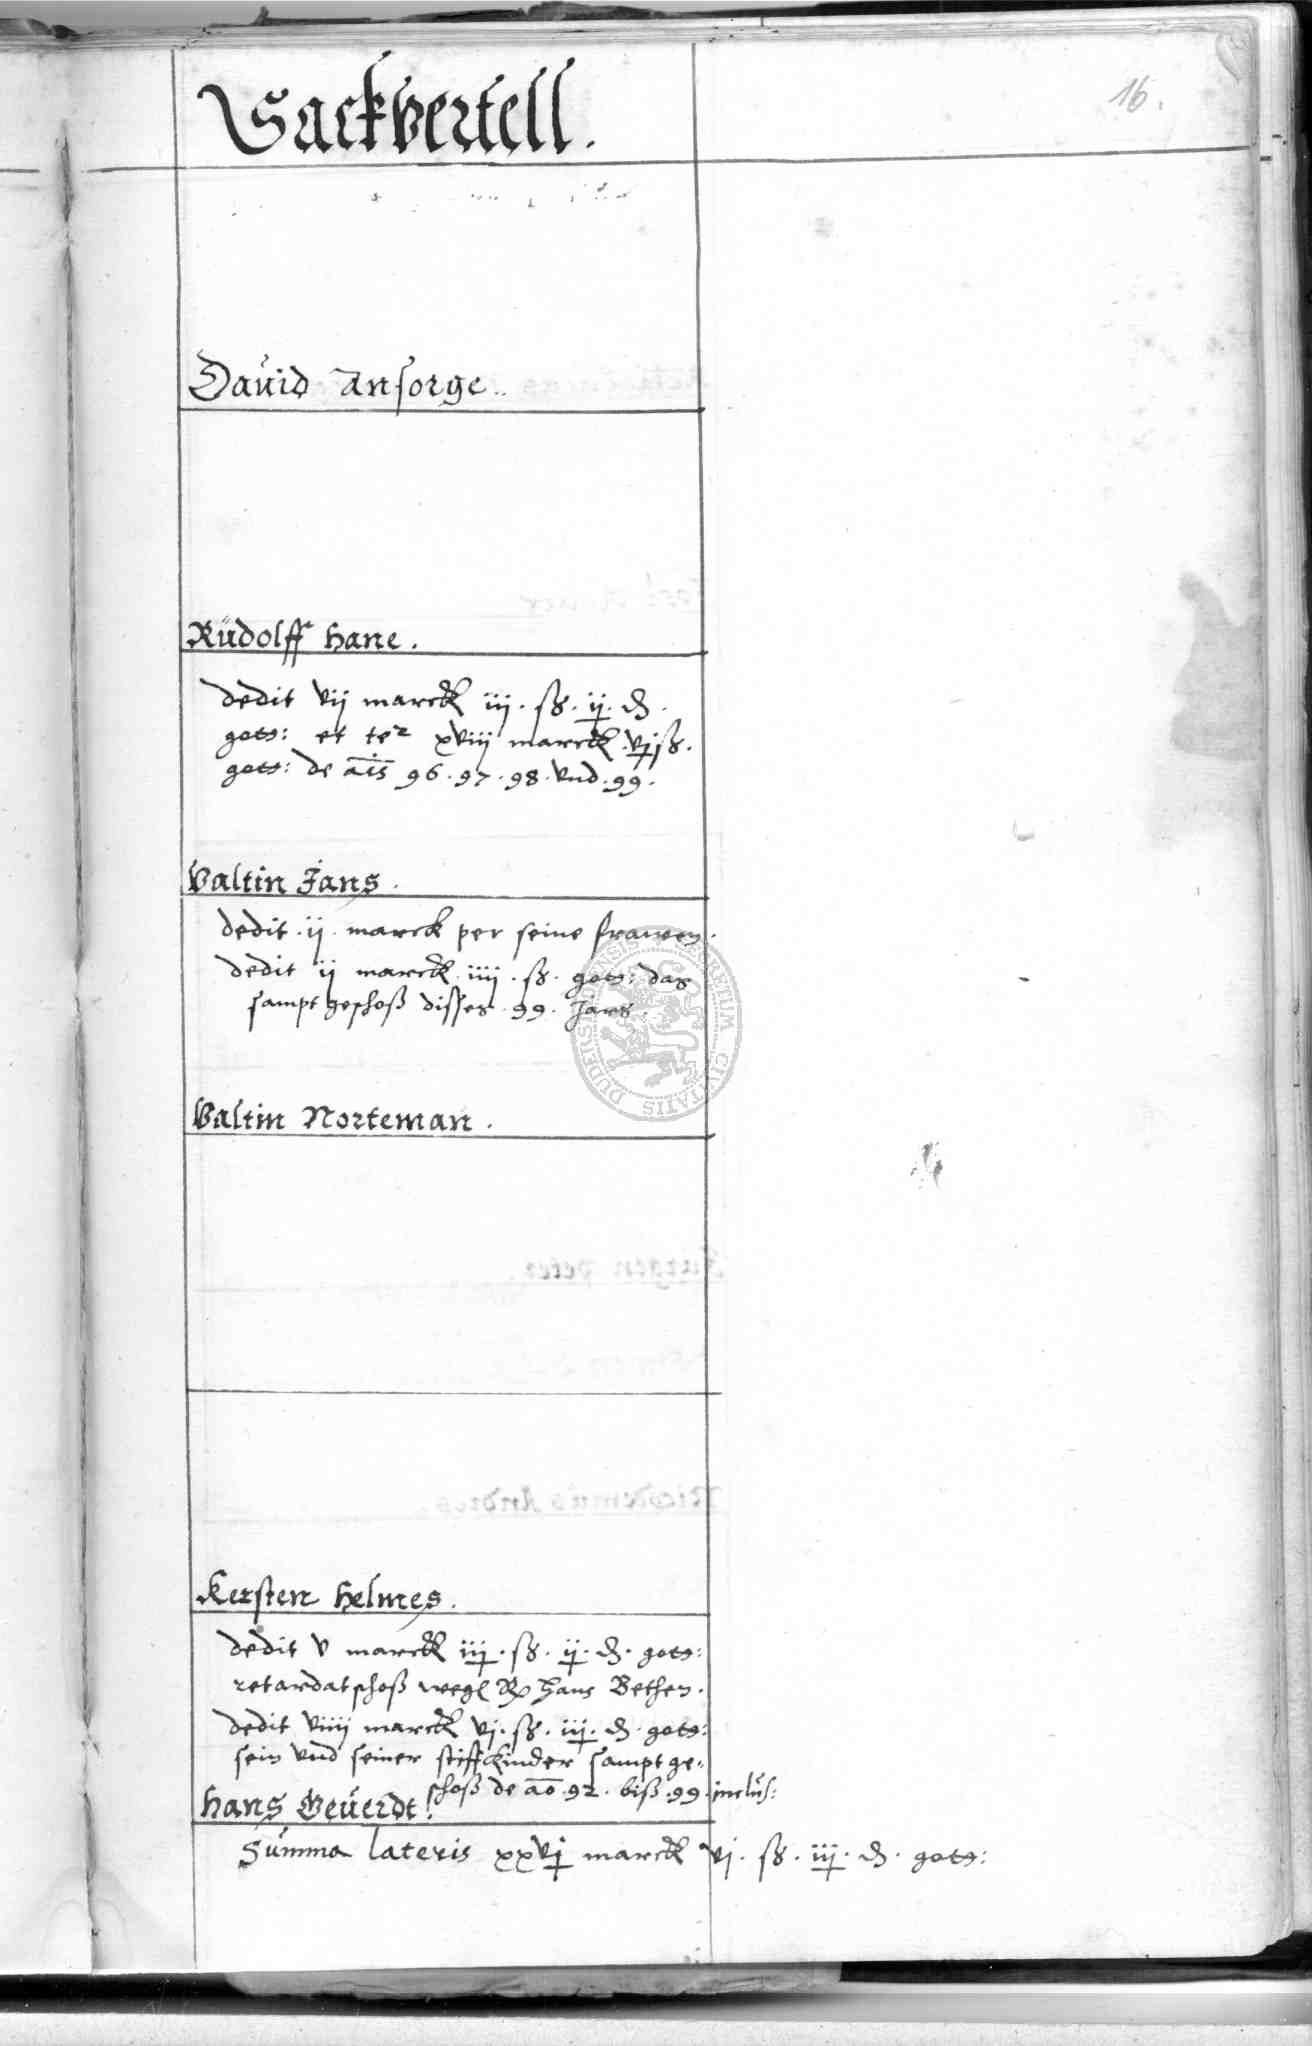 Sackvertell.
16.
Dauid Ansorge..
Rudolff Hane.
dedit vij marck iij. ß. ij. d.
gots: et ter xviij marck. vj ß.
gots: de ais 96. 97. 98. vnd. 99.
Valtin Jans.
dedit. ij. marck per seine frawen.
dedit ij marck. iiij. ß. gots: das
sampt geschoß disses. 99. Jars.
DUDERSTADENSIS SECRETUM CIVITATIS
Valtin Norteman.
Kersten Helmes.
dedit v marck iij. ß. ij. d. gots:
retardat schoß Hans Bethen.
dedit viiij marck vj. ß. iij. d. gots:
sein vnd seiner stiffkinder sampt ge-
schoß de ao. 92. biß. 99. inclus:
Hans Geuerdt.
Summa lateris xxvj marck vj. ß. iij. d. gots: